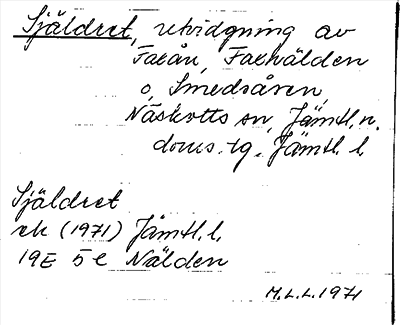 Själdret, utvidgning av
Faxån, Faxnälden
o, Smedsåren,
Näskotts sn, Jämtl. n.
doms. tg. Jämtl. l.
Själdret
ek (1971) Jämtl. l.
19E 5e Nälden
M.L.L. 1971